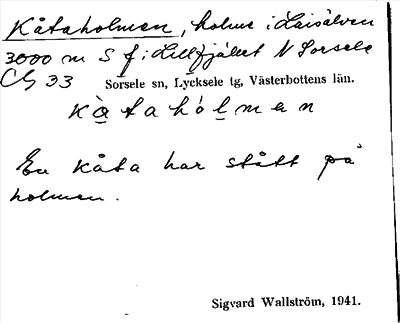 Kåtaholmen, holme i Laisälven
3000 m S f. i Lillfjället N Sorsele
Cg 33 Sorsele sn, Lycksele tg, Västerbottens län.
kå̀tahólmen
En kåta har stått på
holmen.
Sigvard Wallström, 1941.